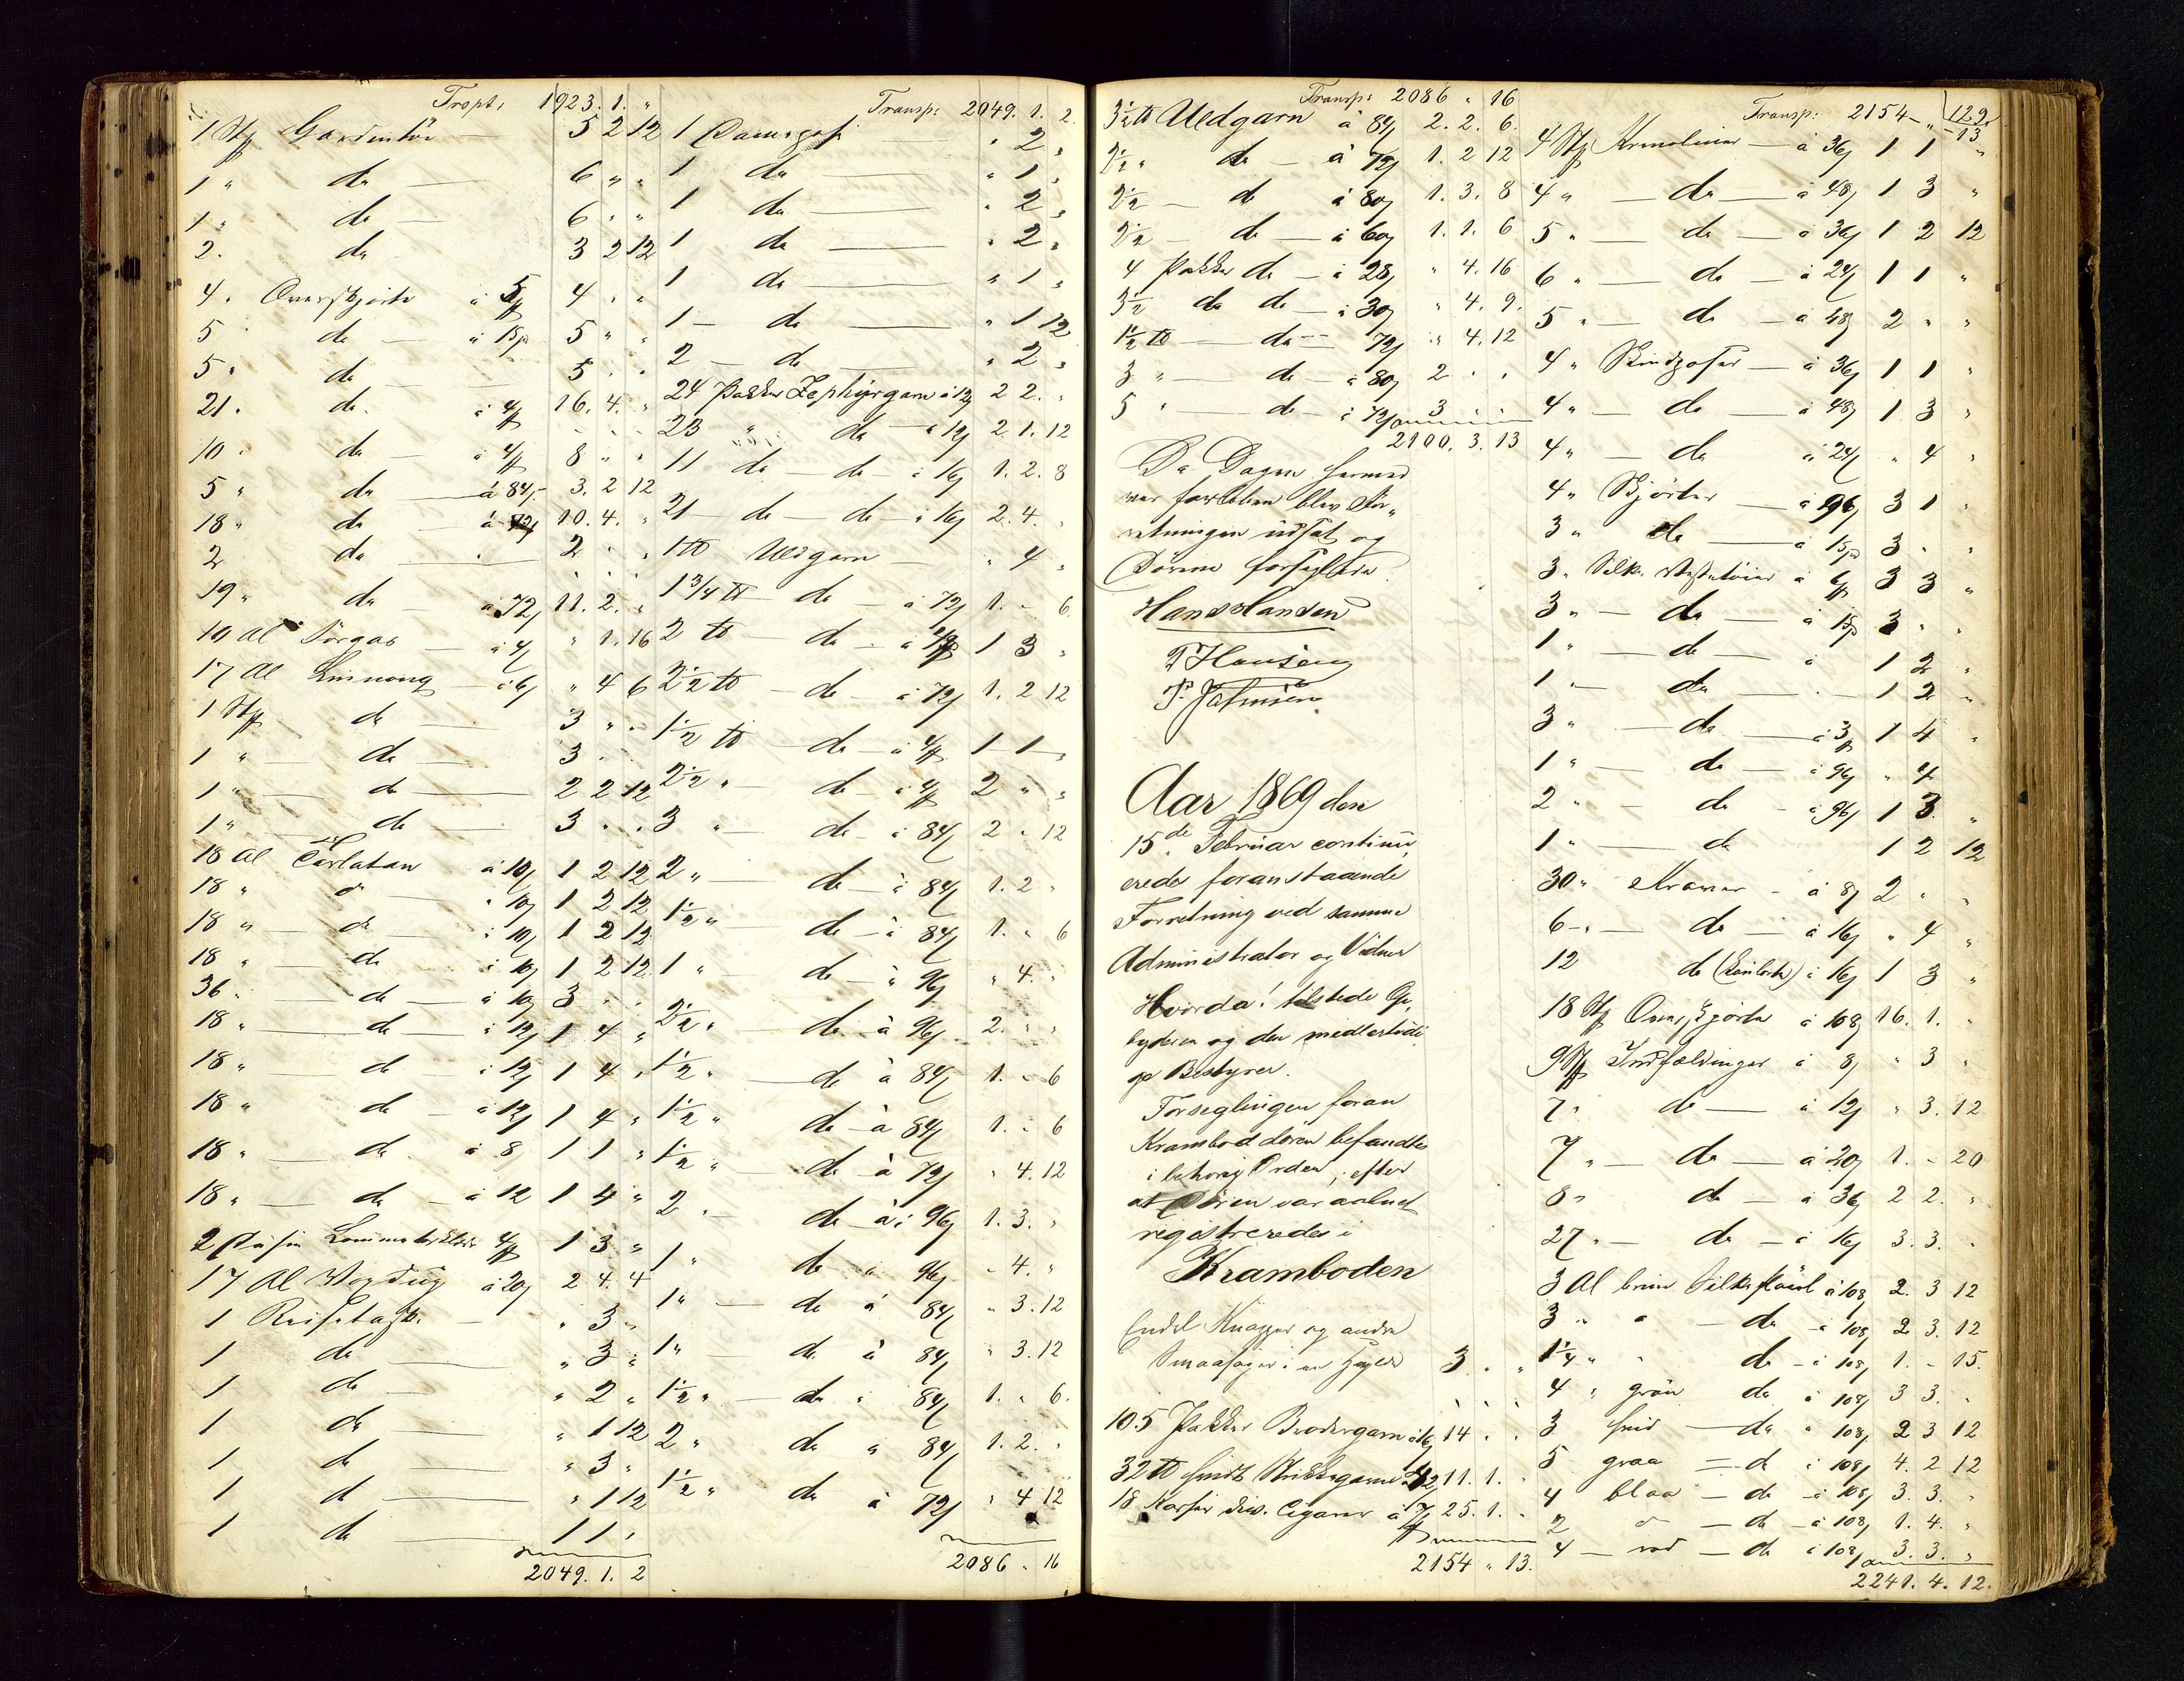 Tropt: 1923. 1. "
1 Stk Gardintöi — 5 2 12
1 " do — 6 " "
1 " do — 6 " "
2. do 3 2 12
4 " Overskjörte à 5 4 " "
5 do — à 1Sp 5 " "
5 " do — 5 " "
21 " do. à 4 16. 4. "
10 " do — à 4 8 " "
5 " do — à 84 3. 2 12
18 " do — à 72 10. 4. "
2 do — 2 " "
19 " do — à 72 11. 2. "
10 Al Sörgas — à 4 " 1. 16
17 Al — à 6 " 4 6
1 Stk do — 3 " "
1 " — do — 3 "
1 " — do — 2 2 12
1 " — do — 3 " "
18 Al Tarlatan à 10 1 2 12
18 " do " 10 1 2 12
18 " — do — à 10 1 2 12
18 " — do à 10 1 2 12
36 " — do — à 10 3 " "
18 " — do — à 12 1 4 "
18 " — do — à 12 1 4 "
18 " do — à 12 1 4 "
18 " — do à 8 1 1 "
18 " — do — à 12 1 4 "
2 Dusin Lommetørklæder 4 1 3 "
17 Al Voxdug à 20 2 4. 4
1 Reisetaske — " 3 "
1 do — " 3 "
1 do — " 2 "
1 do — " 1 12
1 do — " 3 "
1 do — " 1 12
1 do — 1 1 "
2049. 1. 2
Transp: 2049. 1. 2.
1 — " 2 "
1 do — " 1 "
1 do — " 2 "
1 do — " 2 "
1 do — " 1 "
1 — do — " 1 12
2 — do — " 2 "
24 Pakker Zephyrgarn à 12 2 2. "
23 " do — à 12 2. 1. 12
11 do — do — à 16 1. 2. 8
21 — do — do — à 16 2. 4. "
1 ℔ Uldgarn — " 4 "
1 3/4 ℔ — do — à 72 1. " 6
2 ℔ — do — à 4 1 3 "
2 1/2 ℔ — do — à 72 1. 2 12
1 1/2 ℔ — do — à 4 1 1 "
2 1/2 " — do — à 4 2 " "
3 " — do — à 84 2 " 12
2 " — do — à 84 1. 2 "
1 1/2 " — do — à 84 1. " 6
1 " — do — à 96 " 4. "
2 1/2 " — do à 96 2. " "
1 1/2 " — do à 84 1. " 6
1 1/2 " do — à 84 1. " 6
1 1/2 " — do à 72 " 4. 12
2 " — do à 96 1. 3. "
1 " do " 96 " 4. "
1 " — do à 84 " 3. 12
1 " — do à 84 " 3. 12
1 1/2 " — do " 84 1. " 6.
2 " do " 84 1. 2. "
1 1/2 " do à 72 " 4 12
2086 " 16
Transp: 2086 " 16
3 1/2 ℔ Uldgarn à 84 2. 2. 6.
2 1/2 " do — à 72 1. 2 12
2 1/2 — do à 80 1. 3. 8
2 1/2 — do — à 60 1. 1. 6
4 Pakker do — à 28 " 4. 16
3 1/2 do do — à 30 " 4. 9.
1 1/2 ℔ — do — 72 " 4. 12
3 " — do — à 80 2 " "
5 " — do — à 72 3 " "
2100. 3. 13
Da Dagen hermed
var forløben blev For-
retningen udsat og
Dørene forseglede.
Hans Hansen
P Hansen
Aar 1869 den
15de Februar continu-
erede foranstaaende
Forretning ved samme
Administrator og Vidner
Hvorda! tilstede Ge-
byderen og den midlertidi-
ge Bestyrer.
Forseglingen foran
Kramboddøren befandtes
i behørig Orden, efter
at Døren var aabnet
registreredes i
Kramboden
Endel Knapper og andre
Smaasager i en 3 " "
10.5 Pakker Brodergarn à 16 14 " "
32 ℔ hvidt Strikkegarn 11. 1. "
18 Kasser div. Cigarer à 7 25. 1. "
2154 " 13.
Transp: 2154 — " 13
4 Stk Krinoliner — à 36 1 1 "
4 " — do — à 48 1 3 "
5 " — do — à 36 1 2 12
6 " — do — à 24 1 1 "
5 " — do — à 48 2 " "
4 " — à 36 1 1 "
4 " — do — à 48 1 3 "
4 " — do à 24 " 4 "
4 " Skjörter — à 96 3 1 "
3 " do — à 1Sp 3 " "
3 " Silke Vestetöier à 6 3 3 "
3 " — do — à 1Sp 3 " "
1 " — do — à 1 2 "
1 " — do — 1 2 "
3 " — do — à 3 1 4 "
1 " — do — à 96 " 4 "
2 " — do — à 96 1 3 "
1 " — do 1 2 12
30 " Kraver — à 8 2 " "
6 " — do — à 16 " 4 "
12 do à 16 1 3 "
18 Stk Overskjörte à 108 16. 1. "
9 Stk Indfældinger à 8 " 3 "
7 " do — à 12 " 3. 12
7 " — do — à 20 1. " 20
8 " do — à 36 2 2. "
27 " — do — à 16 3. 3. "
3 Al brun Silkefløiel à 108 2. 3 12
3 " " — do — à 108 2 3. 12
1 1/4 " " do — à 108 1. " 15.
4 " grön do à 108 3 3. "
3 hvid — do " 108 2 3 12
5 graa — do à 108 4. 2 12
4 blaa — do — à 108 3. 3. "
2 do — do — à 108 1. 4. "
4 — rød — do à 108 3. 3. "
2241. 4. 12.